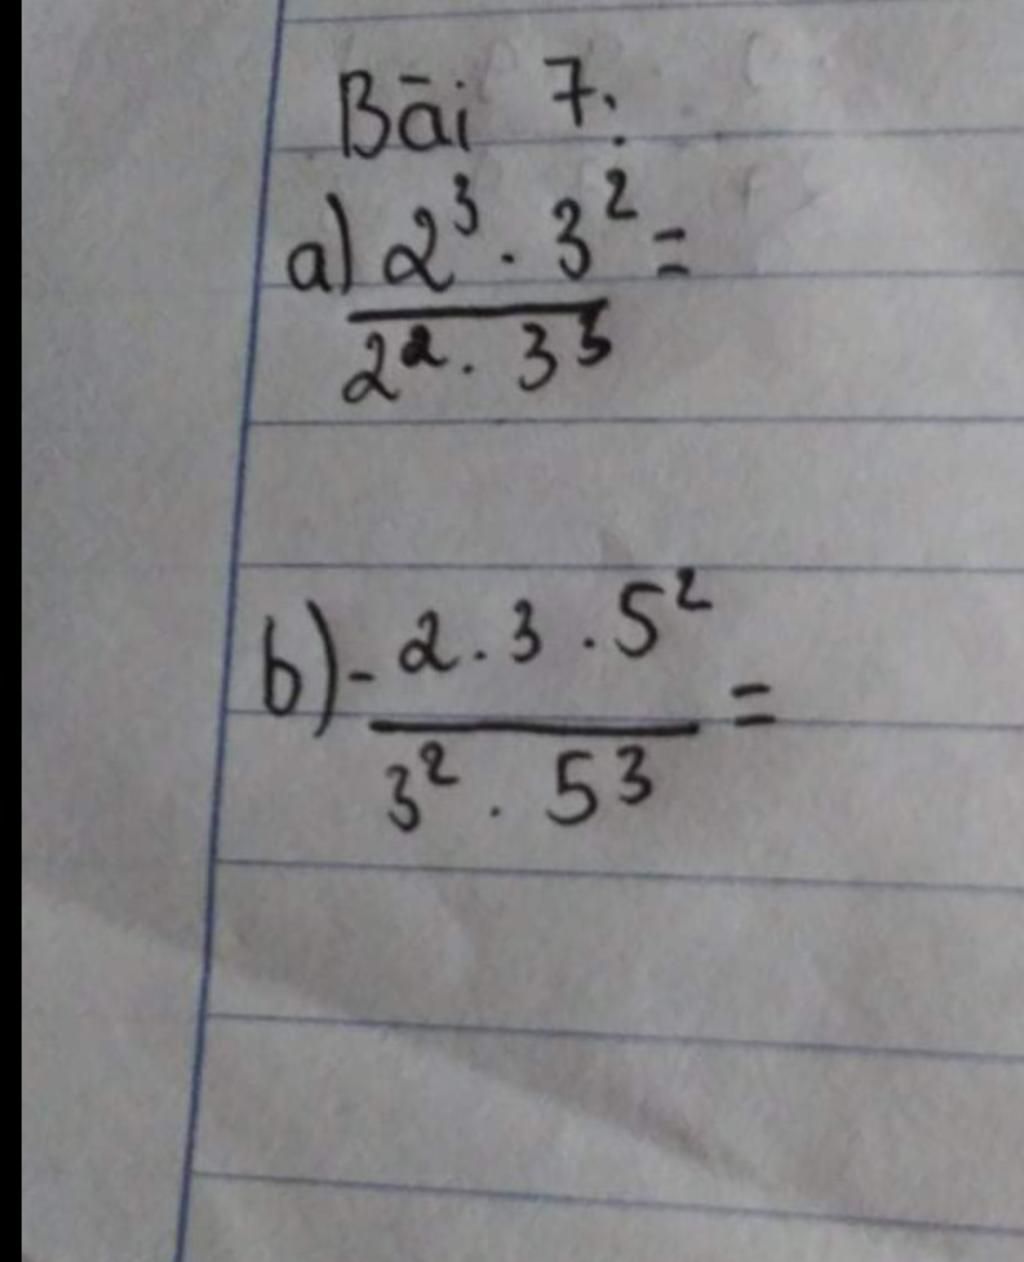 Bài 7:
a) 2³ . 3² =
2² . 3³
b) - 2 . 3 . 5²
=
3² . 5³